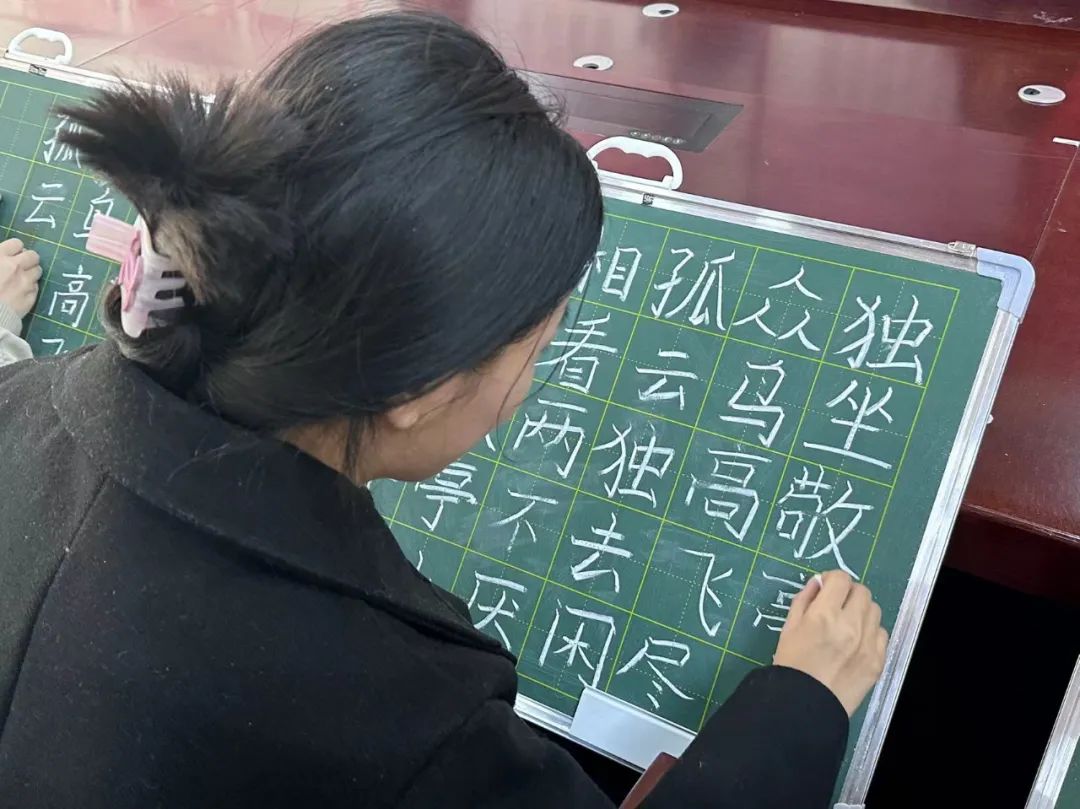 独坐敬亭
众鸟高飞尽
孤云独去闲
相看两不厌
亭
鸟高
孤云